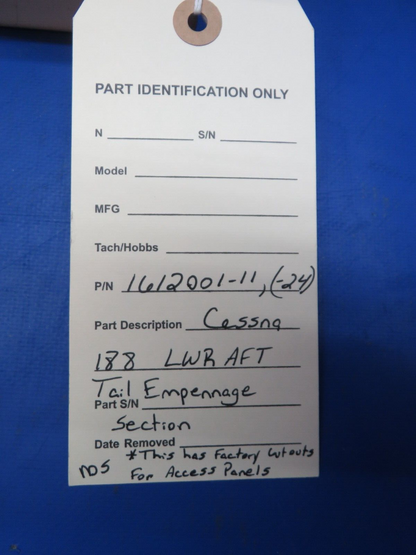 PART IDENTIFICATION ONLY
N S/N
Model
MFG
Tach/Hobbs
P/N 1612001-11, (-24)
Part Description Cessna
188 LWR AFT
Tail Empennage
Part S/N
Section
Date Removed
*This has Factory Cutouts
NDS For Access Panels